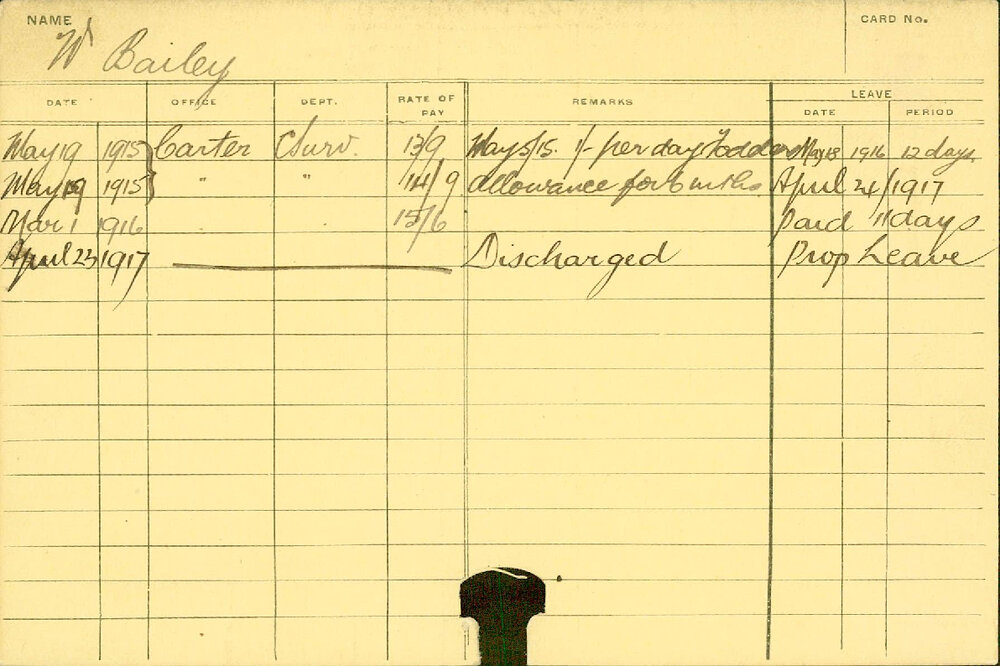 NAME
W Bailey
CARD No.
DATE OFFICE DEPT. RATE OF PAY REMARKS LEAVE
DATE PERIOD
May 19 1915 Carter C Surv. 13/9 May 5/15. 1/- per day Fodder May 18 1916 12 days.
May 19 1915 " " 14/9 allowance for 6 mths. April 24/1917
Mar 1 1916 " " 15/6 Paid 11 days
April 23 1917 Discharged Prop Leave